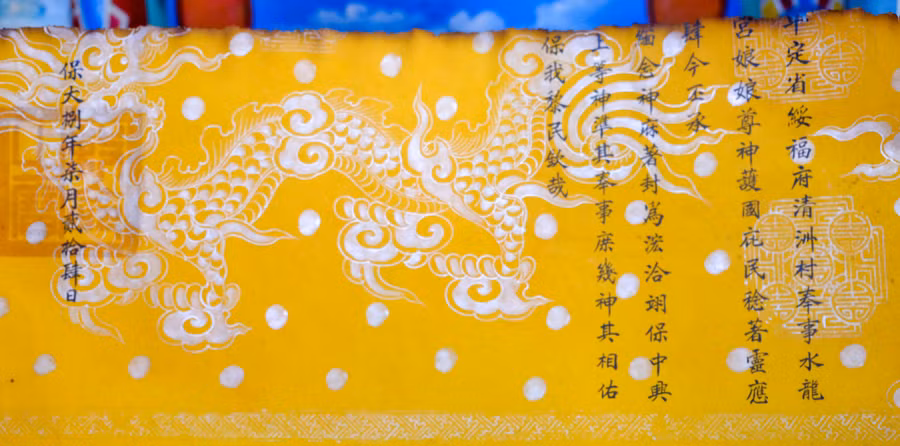 平定省綏福府清洲村奉事水龍
宮娘娘尊神護國庇民稔著靈應
肆今丕承
緬念神庥著封爲浤洽翊保中興
上等神準其奉事庶幾神其相佑
保我黎民欽哉
保大捌年柒月貳拾肆日